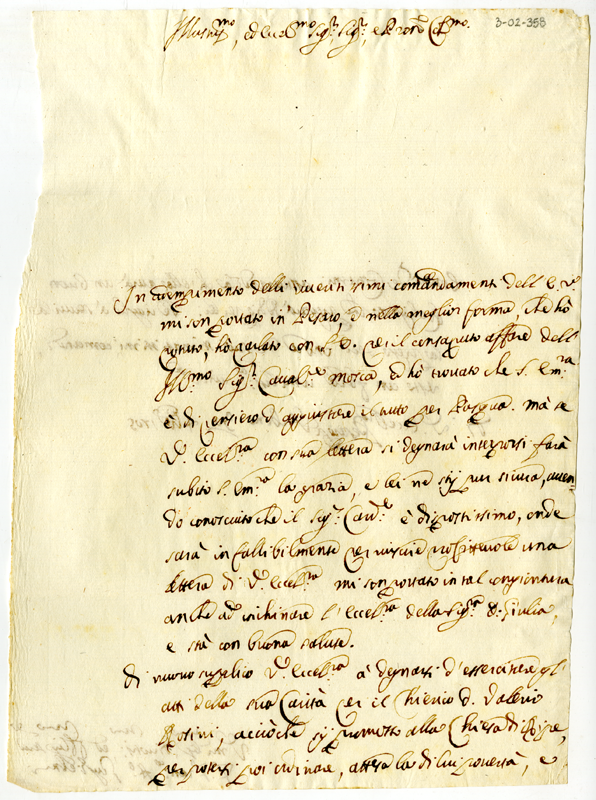 3-02-358
Illustr.mo, ed Ecc.mo Sig.r Sig.r, e Pron.e Col.mo
In adempimento delli riveritissimi comandamenti dell'E. V.
mi son portato in Pesaro, e nella meglior forma, che hò
potuto, hò parlato con S. E. per il consaputo affare dell'
Ill.mo Sig.r Caval.re Mosca, ed hò trovato che S. Em.za
è di pensiero d'aggiustare il tutto per Pasqua. mà se
V. Eccell.za con sua lettera si degnarà interporsi farà
subito S. Em.za la grazia, e lei ne stij pur sicura, auen-
do conosciuto che il Sig.r Card.e è dispostissimo, onde
sarà infallibilmente per riuscire profittevole una
lettera di V. Eccell.za mi son portato in tal congiuntura
anche ad inchinare l'Eccell.za della Sig.ra D. Giulia,
e stà con buona salute.
Di nuovo supplico V. Eccell.za a degnarsi d'essercitare gl'
atti della sua Carità per il Chierico D. Valerio
Rosini, acciòche sij promosso alla Chiesa di
per potersi poi ordinare, attesa la di lui povertà, e